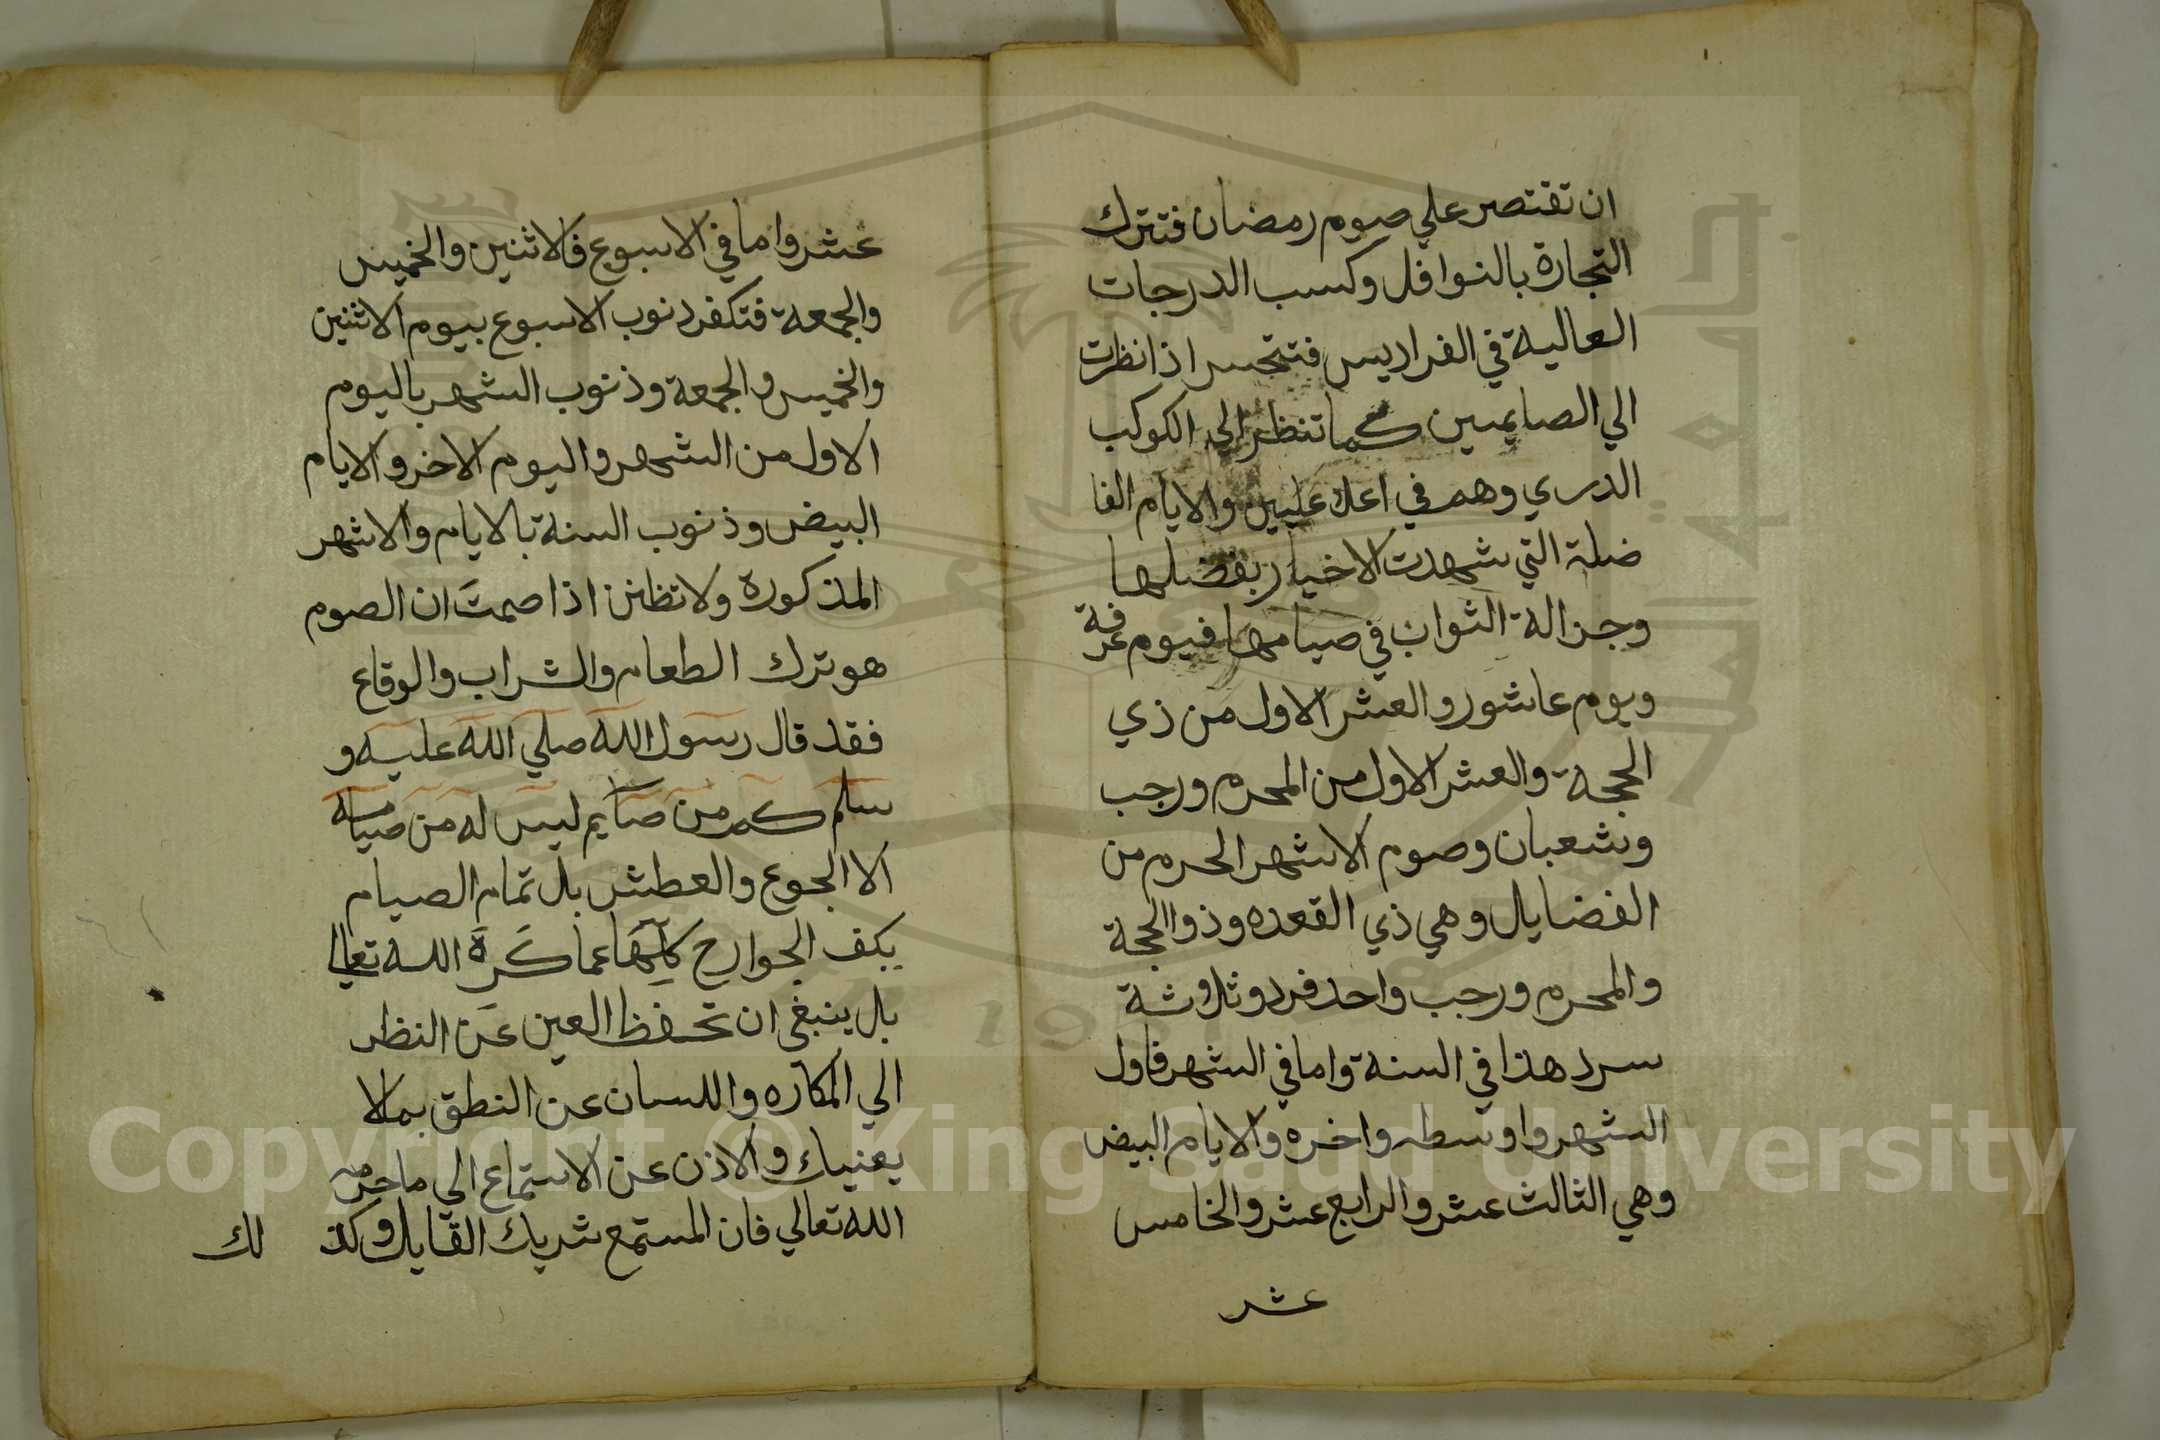 ان تقتصر علي صوم رمضان فتترك
التجارة بالنوافل وكسب الدرجات
العالية في الفراديس فتتحسر اذا نظرت
الي الصايمين كما تنظر الي الكوكب
الدري وهم في اعلا عليين والايام الفا
ضلة التي شهدت الاخيار بفضلها
وجزالة الثواب في صيامها فيوم عرفة
ويوم عاشور والعشر الاول من ذي
الحجة والعشر الاول من المحرم ورجب
وشعبان وصوم الاشهر الحرم من
الفضايل وهي ذي القعده وذوا الحجة
والمحرم ورجب واحد فرد وثلاثة
سرد هذا في السنة واما في الشهر فاول
الشهر واوسطه واخره والايام البيض
وهي الثالث عشر والرابع عشر والخامس
عشر
عشر واما في الاسبوع فالاثنين والخميس
والجمعة فتكفر ذنوب الاسبوع بيوم الاثنين
والخميس والجمعة وذنوب الشهر باليوم
الاول من الشهر واليوم الاخر والايام
البيض وذنوب السنة بالايام والاشهر
المذكورة ولا تظنن اذا صمت ان الصوم
هو ترك الطعام والشراب والوقاع
فقد قال رسول الله صلي الله عليه و
سلم كم من صايم ليس له من صيامه
الا الجوع والعطش بل تمام الصيام
بكف الجوارح كلها عما كره الله تعالي
بل ينبغي ان تحفظ العين عن النظر
الي المكاره واللسان عن النطق بما لا
يعنيك والاذن عن الاستماع الي ما حرمه
الله تعالي فان المستمع شريك القايل وكذ لك
Copyright © King Saud University